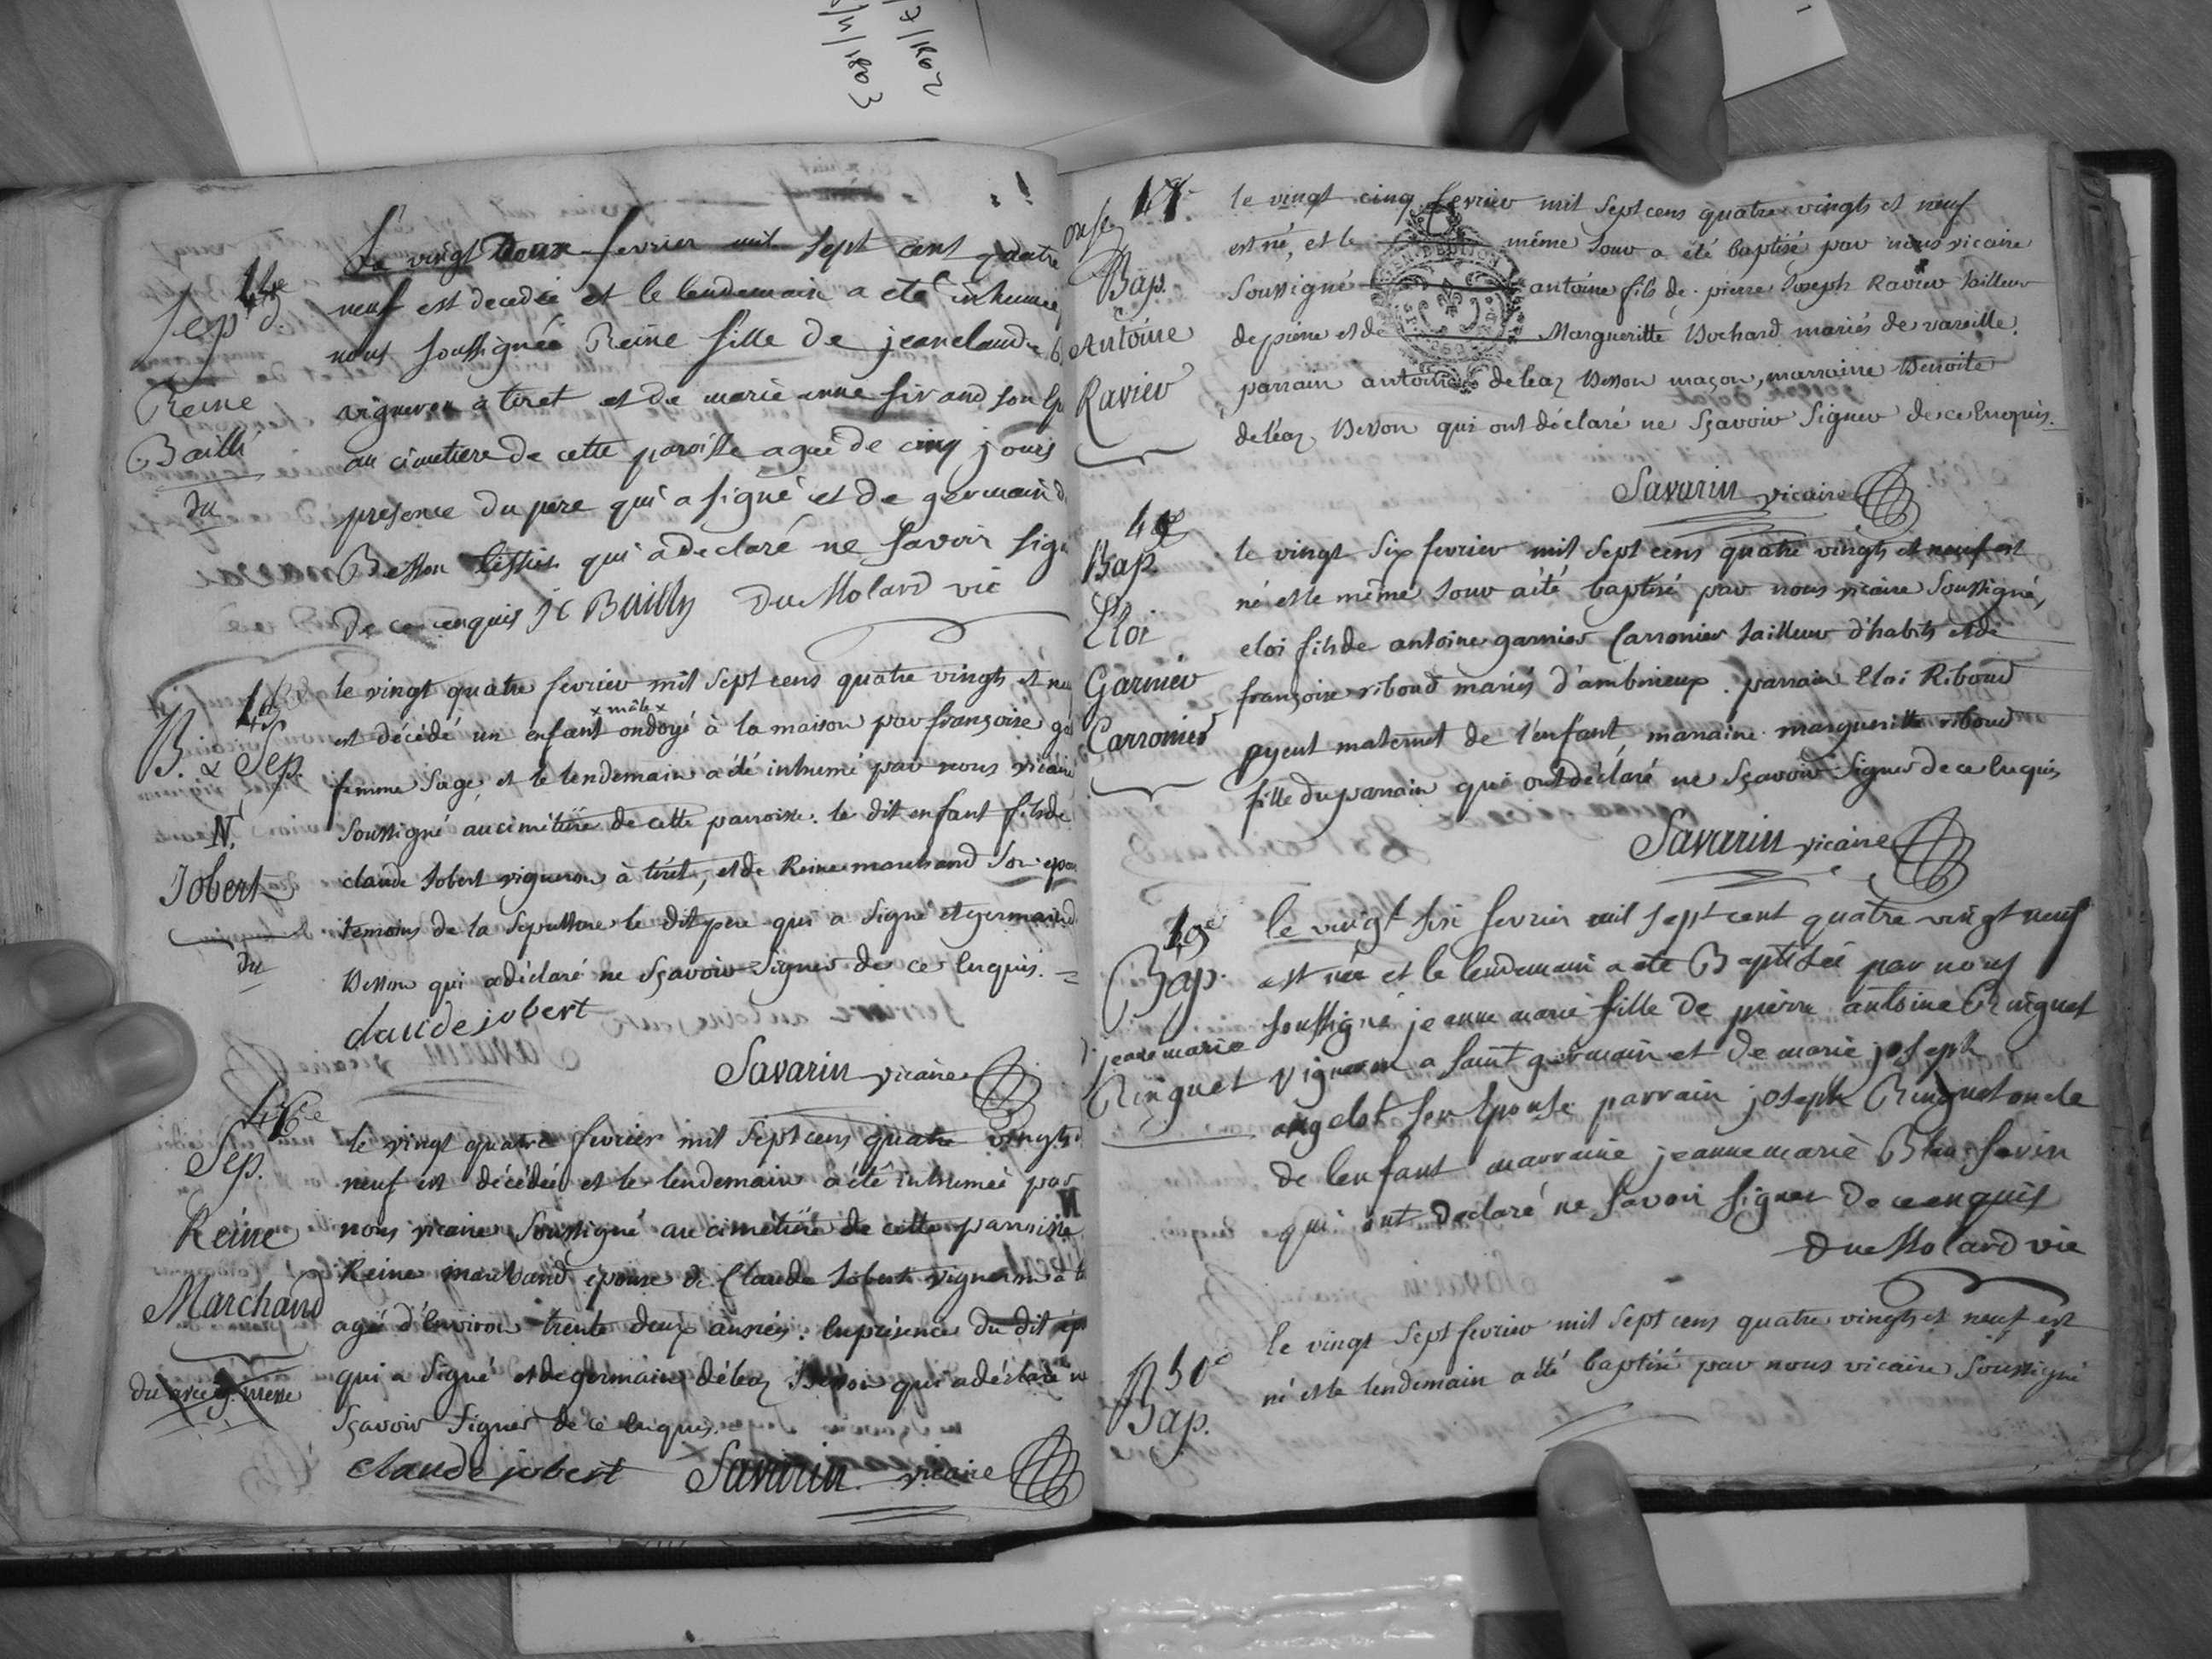 7/1802
/11/1803
44e
Sep
Reine
Bailli
du
Le vingt Deux fevrier mil sept cent quatre
neuf est decedée et le lendemain a eté inhumée
nous soussignée Reine fille de jean claude
vigneron a tiret et de marie anne sirand son
au cimetiere de cette paroisse agée de cinq jours
presence du pere qui a signé et de germain
Besson qui a declaré ne savoir sig
de ce enquis J C Bailly Dumolard vic
45
B. & Sep.
N.
Jobert
du
le vingt quatre fevrier mil sept cens quatre vingts et neu
x mâle x
est décédé un enfant ondoyé à la maison par françoise
femme sage, et le lendemain a été inhumé par nous vicaire
soussigné au cimétiere de cette parroisse. le dit enfant fils de
claude Jobert vigneron à tiret, et de Reine marchand son epou
temoins de la sepulture le dit pere qui a signé et germain
Besson qui a déclaré ne sçavoir signer de ce enquis.
claude jobert
Savarin vicaire
46e
Sep.
Reine
Marchand
du avec g. messe
le vingt quatre fevrier mil sept cens quatre vingts
neuf est décédée et le lendemain a été inhumée par
nous vicaire soussigné au cimétiere de cette parroisse
Reine marchand épouse de Claude Jobert vigneron à ti
agé d'environ trente deux années. en présence du dit ép
qui a signé et de germain déléaz Besson qui a déclaré ne
sçavoir signer de ce enquis.
claude jobert Savarin vicaire
47
Bap.
Antoine
Ravier
le vingt cinq fevrier mil sept cens quatre vingts et neuf
est né, et le même jour a été baptisé par nous vicaire
soussigné antoine fils de pierre joseph Ravier tailleur
de pierre et de Margueritte Bochard mariés de vareille.
parrain antoine deléaz Besson maçon, marraine Benoite
deléaz Besson qui ont déclaré ne sçavoir signer de ce enquis.
Savarin vicaire
48e
Bap.
Eloi
Garnier
Carronier
le vingt six fevrier mil sept cens quatre vingts et neuf est
né et le même jour a été baptisé par nous vicaire soussigné,
eloi fils de antoine garnier Carronier tailleur d'habits et de
françoise riboud mariés d'ambérieux. parrain Eloi Riboud
ayeul maternel de l'enfant, marraine margueritte riboud
fille du parrain qui ont déclaré ne sçavoir signer de ce enquis
Savarin vicaire
49e
Bap.
jeane marie
Ringuet
le vingt six fevrier mil sept cent quatre vingt neuf
est née et le lendemain a eté Baptisée par nous
soussigné jeanne marie fille de pierre antoine Ringuet
vigneron a saint germain et de marie joseph
angelot son Epouse parrain joseph Ringuet oncle
de lenfant marraine jeanne marie Blanc savin
qui ont declaré ne savoir signer de ce enquis
Dumolard vic
50e
Bap.
le vingt sept fevrier mil sept cens quatre vingts et neuf est
né et le lendemain a été baptisé par nous vicaire soussigné